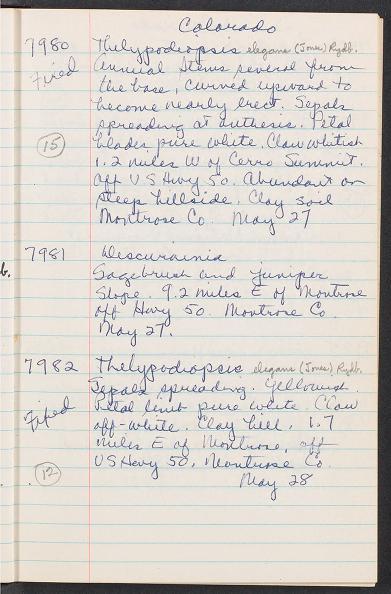 Colorado
7980 Thelypodiopsis elegans (Jones) Rydb.
Fixed Annual Stems several from
the base, curved upward to
become nearly erect. Sepals
spreading at anthesis. Petal
15 blades pure white. Claw whitish
1.2 miles W of Cerro Summit.
off US Hwy 50. Abundant on
steep hillside. Clay soil
Montrose Co. May 27
7981 Descurainia
b. Sagebrush and juniper
Slope. 9.2 miles E of Montrose
off Hwy 50. Montrose Co
May 27.
7982 Thelypodiopsis elegans (Jones) Rydb.
Sepals spreading. Yellowish.
Fixed Petal limb pure white. Claw
off-white. Clay hill, 1.7
miles E of Montrose, off
12 US Hwy 50, Montrose Co.
May 28